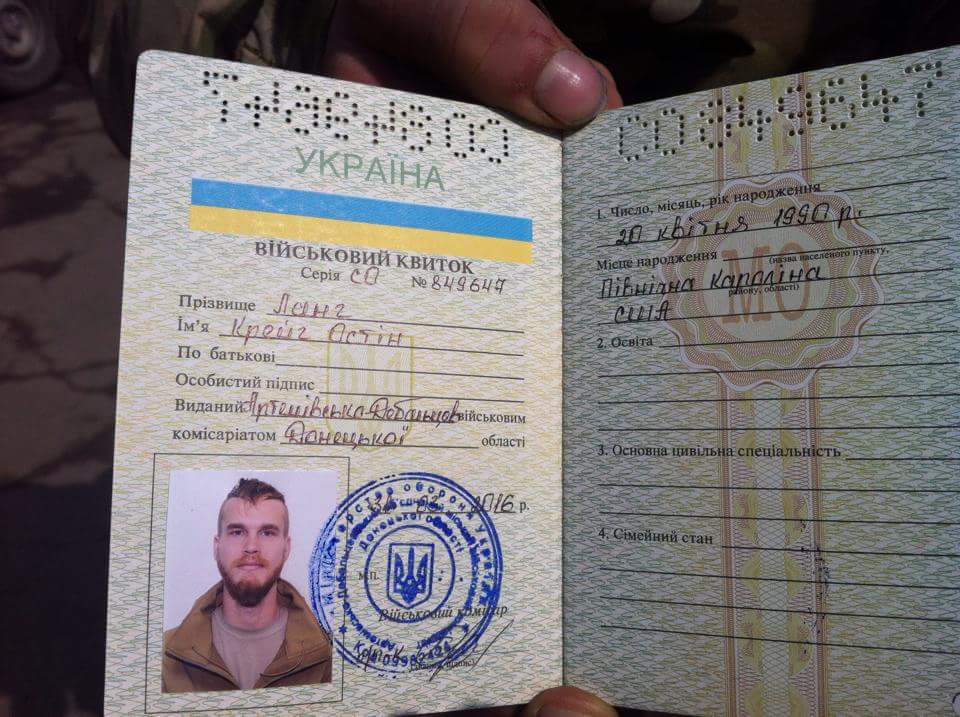 УКРАЇНА
ВІЙСЬКОВИЙ КВИТОК
Серія СО № 849647
Прізвище Ланг
Ім'я Крейг Остін
По батькові
Особистий підпис
Виданий Артемівсько-Дебальцев військовим
комісаріатом Донецької області
31 03 2016 р.
м.п.
Військовий комісар
СО 849647
1. Число, місяць, рік народження
20 квітня 1990 р.
Місце народження
(назва населеного пункту,
Північна Кароліна
району, області)
США
МО
2. Освіта
3. Основна цивільна спеціальність
4. Сімейний стан